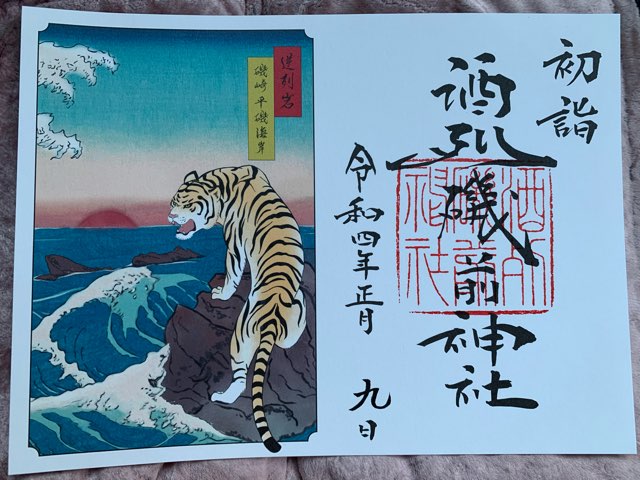 初詣
酒列磯前神社
酒列
磯前
神社
令和四年正月 九日
逆列岩
磯崎 平磯海岸